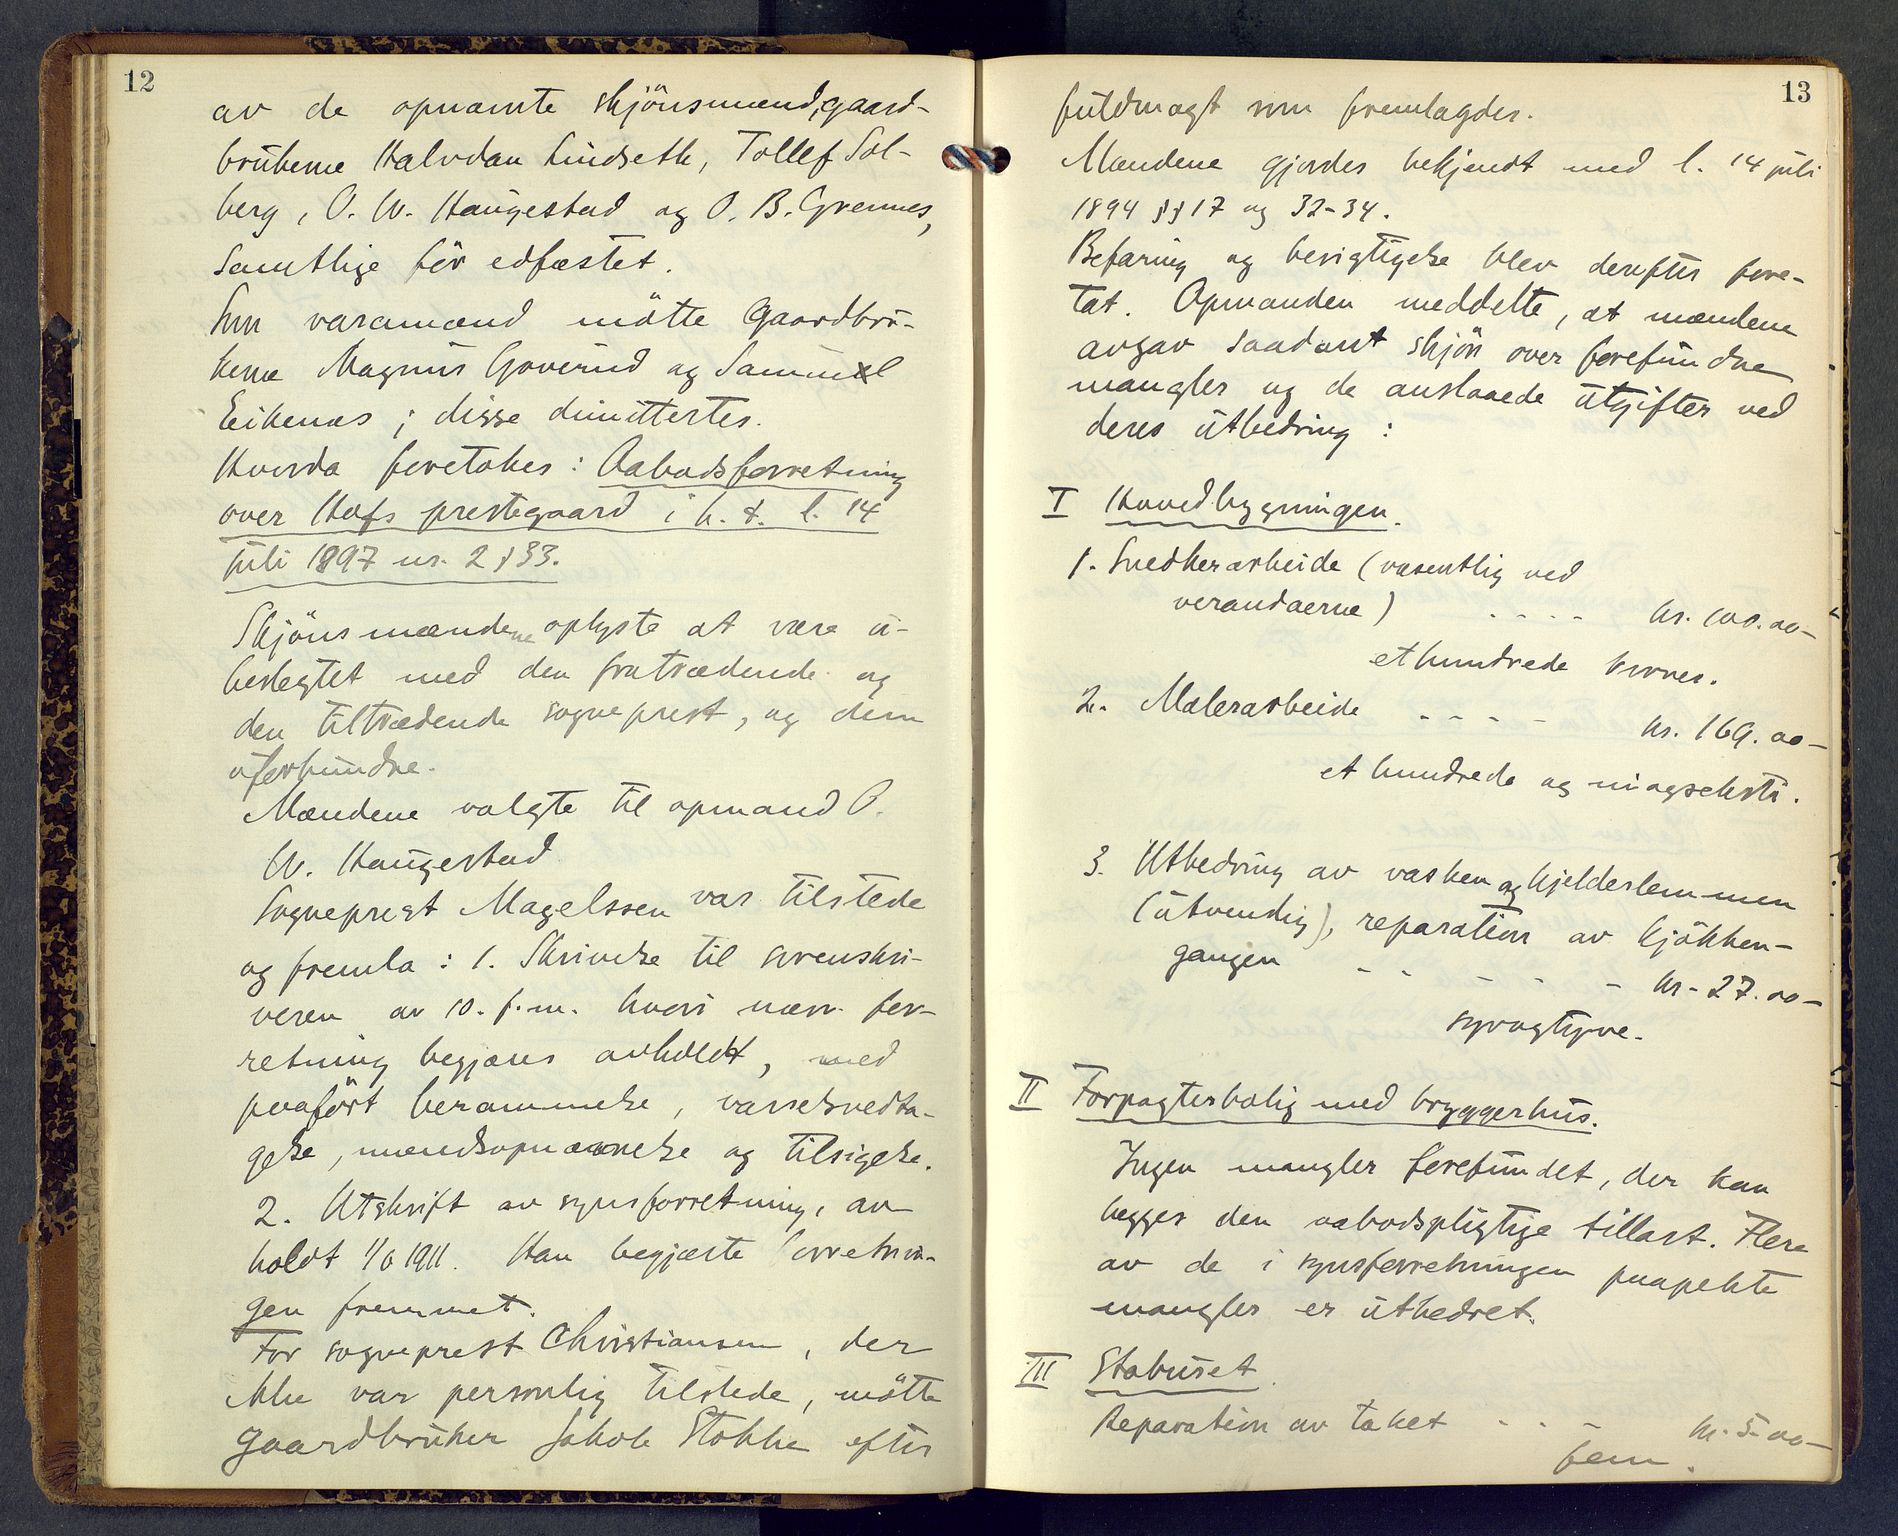 12
av de opnævnte skjönsmænd, gaard-
brukerne Halvdan Lindseth, Tollef Sol-
berg, O. W. Haugestad og O. B. Grennes,
samtlige för edfæstet.
Som varamænd mötte gaardbru-
kerne Magnus Goverud og Samuel
Eikenæs; disse dimittertes.
Hvorda foretokes: Aabodsforretning
over Hofs prestegaard i h. t. l. 14
juli 1897 nr. 2 § 33.
Skjönsmændene oplyste at være u-
beslegtet med den fratrædende og
den tiltrædende sogneprest, og dem
uforbundne.
Mændene valgte til opmand O.
W. Haugestad
Sogneprest Magelssen var tilstede
og fremla: 1. Skrivelse til sorenskri-
veren av 10. f.m. hvori nærv. for-
retning begjæres avholdt, med
paaført berammelse, varselsvedta-
gelse, mændsopnævnelse og tilsigelse.
2. Utskrift av synsforretning, av
holdt 1/6 1911. Han begjærte forretnin-
gen fremmet.
For sogneprest Christiansen, der
ikke var personlig tilstede, mötte
gaardbruker Jakob Stokke efter
13
fuldmagt som fremlagdes.
Mændene gjordes bekjendt med l. 14 juli
1894 §§ 17 og 32-34.
Befaring og besigtigelse blev derefter fore-
tat. Opmanden meddelte, at mændene
avgav saadant skjön over forefundne
mangler og de anslaaede utgifter ved
deres utbedring:
I Hovedbygningen.
1. Snedkerarbeide (væsentlig ved
verandaerne) - - - - kr. 100.00-
et hundrede kroner.
2. Malerarbeide - - - - kr. 169.00-
et hundrede og niogseksti.
3. Utbedring av vasken og kjelderlemmen
(utvendig), reparation av kjökken-
gangen - - - - - kr. 27.00-
syvogtyve.
II Forpagterbolig med bryggerhus.
Ingen mangler forefundet, der kan
lægges den aabodspligtige tillast. Flere
av de i synsforretningen paapekte
mangler er utbedret.
III Stabuset.
Reparation av taket - - - kr. 5.00-
fem.